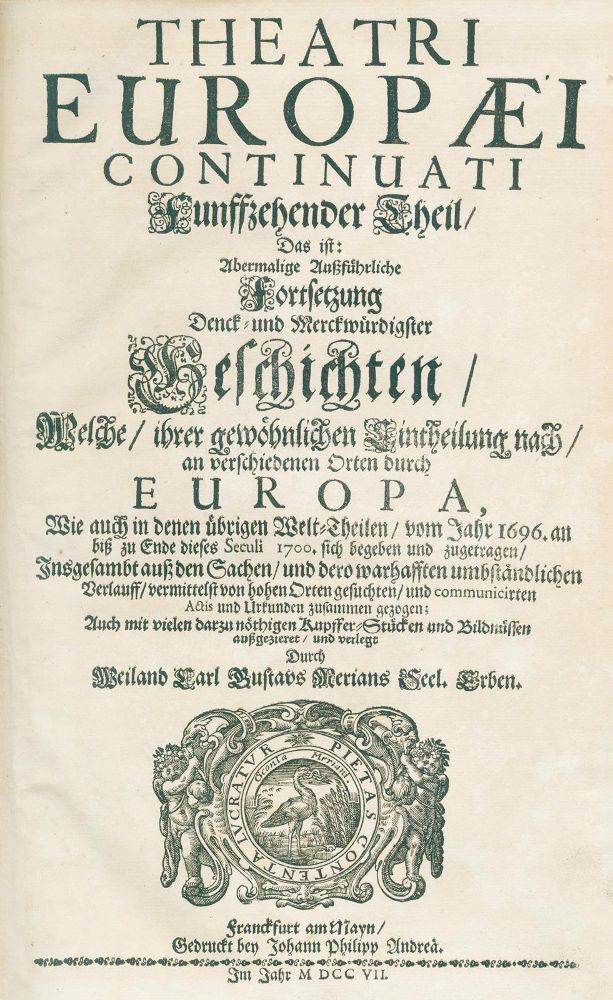 THEATRI
EUROPÆI
CONTINUATI
Funffzehender Theil/
Das ist:
Abermalige Außführliche
Fortsetzung
Denck- und Merckwürdigster
Geschichten /
Welche/ ihrer gewöhnlichen Eintheilung nach/
an verschiedenen Orten durch
EUROPA,
Wie auch in denen übrigen Welt-Theilen/ vom Jahr 1696. an
biß zu Ende dieses Seculi 1700. sich begeben und zugetragen/
Insgesambt auß den Sachen/ und dero warhafften umbständlichen
Verlauff/ vermittelst von hohen Orten gesuchten/ und communicirten
Actis und Urkunden zusammen gezogen;
Auch mit vielen darzu nöthigen Kupffer-Stücken und Bildnüssen
außgezieret/ und verlegt
Durch
Weiland Carl Gustavs Merians Seel. Erben.
PIETAS CONTENTA LUCRATUR
Meriani
Franckfurt am Mayn/
Gedruckt bey Johann Philipp Andreä.
Im Jahr M DCC VII.